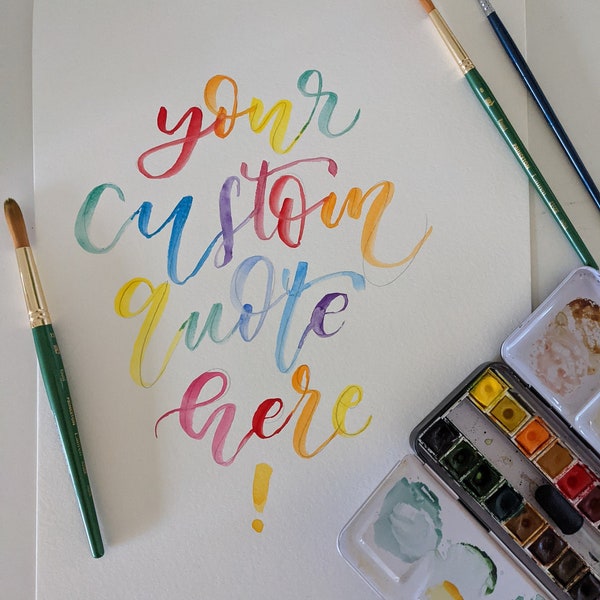 your
custom
quote
here
!